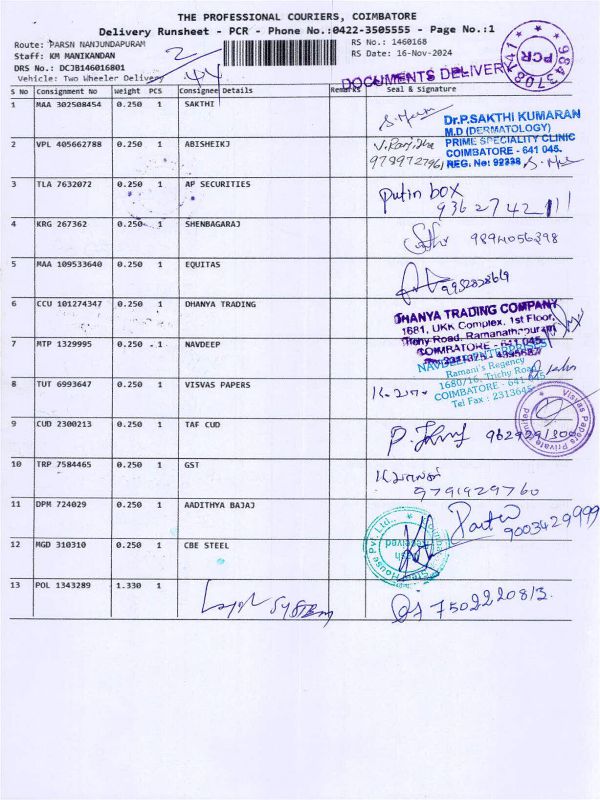 THE PROFESSIONAL COURIERS, COIMBATORE
Delivery Runsheet - PCR - Phone No.:0422-3505555 - Page No.:1
Route: PARSN NANJUNDAPURAM
RS No.: 1460168
Staff: KM MANIKANDAN
RS Date: 16-Nov-2024
DRS No.: DCJB146016801
Vehicle: Two Wheeler Delivery
2
DOCUMENTS DELIVERY
PCR
S No Consignment No Weight PCS Consignee Details Remarks Seal & Signature
1 MAA 302508454 0.250 1 SAKTHI
Dr.P.SAKTHI KUMARAN
M.D (DERMATOLOGY)
PRIME SPECIALITY CLINIC
COIMBATORE - 641 045.
REG. No: 92338
2 VPL 405662788 0.250 1 ABISHEIKJ
9789727961
3 TLA 7632072 0.250 1 AP SECURITIES
Putin box
4 KRG 267362 0.250 1 SHENBAGARAJ
9894056398
5 MAA 109533640 0.250 1 EQUITAS
6 CCU 101274347 0.250 1 DHANYA TRADING
DHANYA TRADING COMPANY
1681, UKK Complex, 1st Floor,
Trichy Road, Ramanathapuram
COIMBATORE - 641 045.
7 MTP 1329995 0.250 1 NAVDEEP
NAVDEEP ENTERPRISES
Ramani's Regency
1680/16, Trichy Road
COIMBATORE - 641 045
Tel Fax : 2313645
8 TUT 6993647 0.250 1 VISVAS PAPERS
Visvas Papers Private Limited
9 CUD 2300213 0.250 1 TAF CUD
10 TRP 7584465 0.250 1 GST
9791929760
11 DPM 724029 0.250 1 AADITHYA BAJAJ
9003429999
12 MGD 310310 0.250 1 CBE STEEL
House Pvt. Ltd.,
13 POL 1343289 1.330 1
System